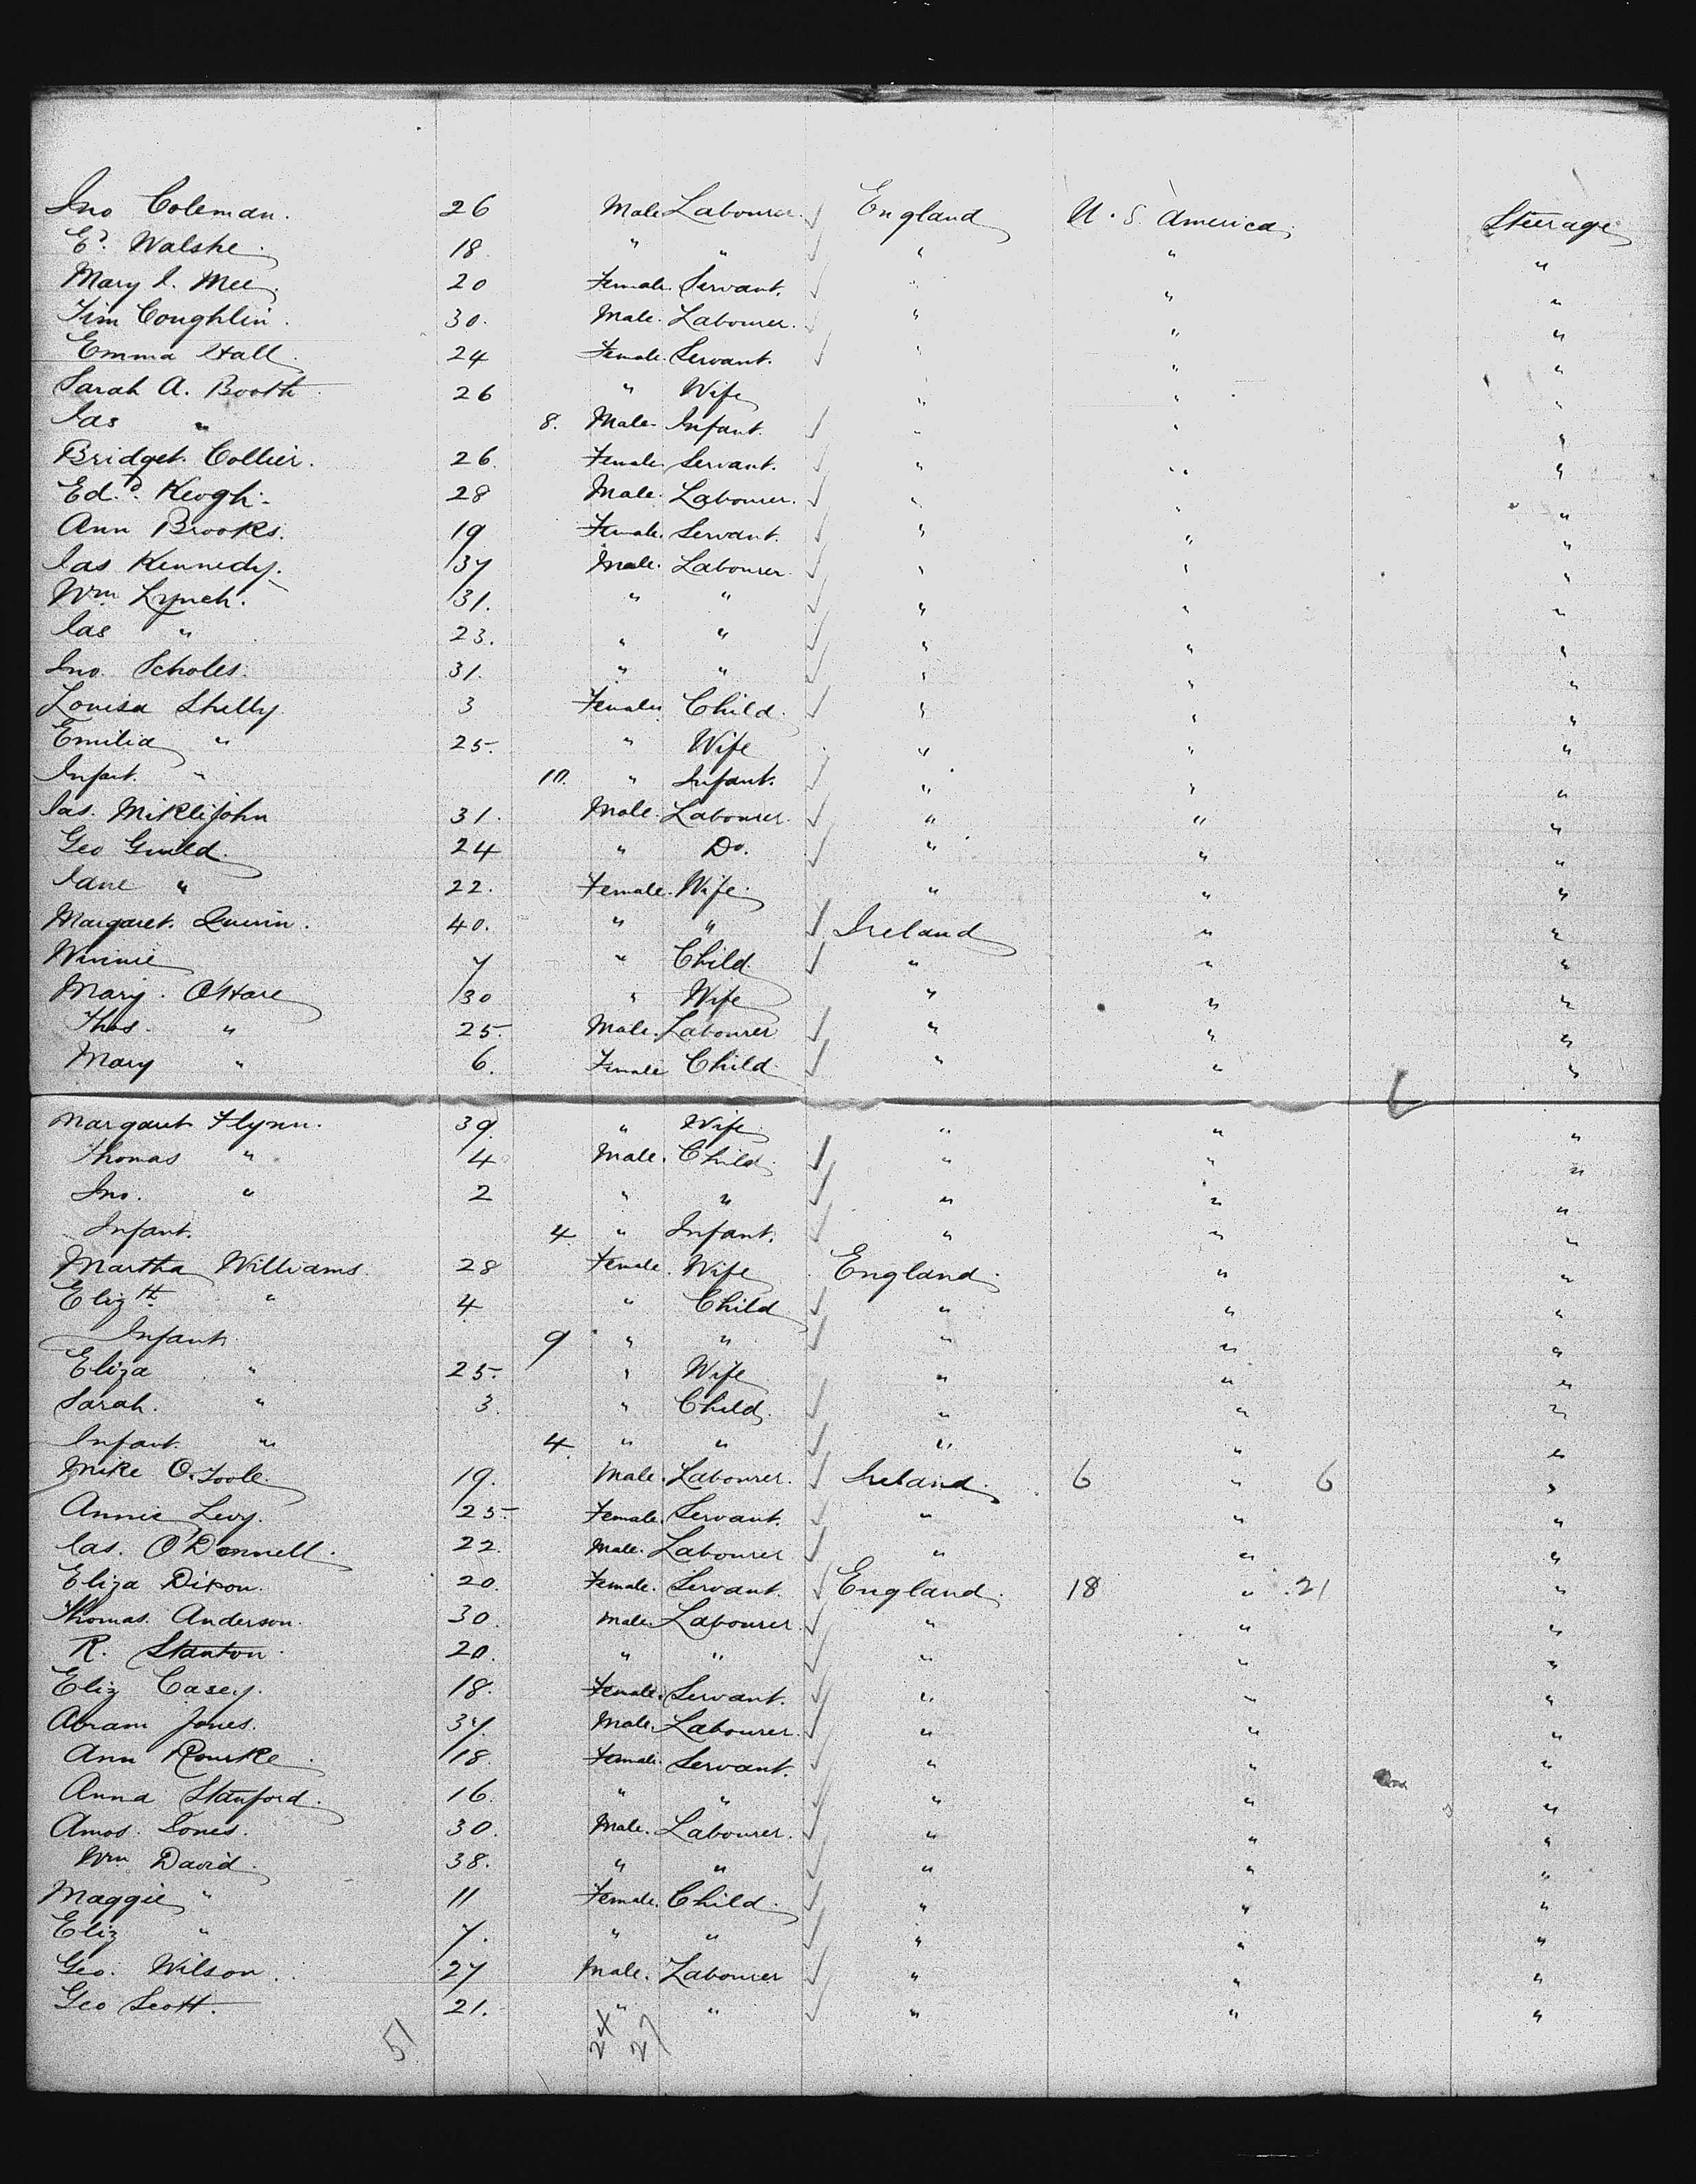 Jno Coleman. 26 Male Labourer. England U. S. America, Steerage
Ed. Walshe. 18. " " " " "
Mary J. Mee. 20 Female. Servant. " " "
Tim Coughlin. 30. Male. Labourer. " " "
Emma Hall. 24 Female. Servant. " " "
Sarah A. Booth. 26 " Wife " " "
Jas " 8. Male. Infant. " " "
Bridget Collier. 26. Female. Servant. " " "
Ed.d Keogh. 28 Male. Labourer. " " "
Ann Brooks. 19 Female. Servant. " " "
Jas Kennedy. 37 Male. Labourer. " " "
Wm Lynch. 31. " " " " "
Jas " 23. " " " " "
Jno. Scholes. 31. " " " " "
Louisa Shelly 3 Female Child. " " "
Emilia " 25. " Wife " " "
Infant. " 10. " Infant. " " "
Jas. Miklejohn 31. Male. Labourer. " " "
Geo Guild. 24 " Do. " " "
Jane " 22. Female. Wife. " " "
Margaret. Quinn. 40. " " Ireland " "
Winnie 7 " Child " " "
Mary. O'Hare 30 " Wife " " "
Thos. " 25. Male. Labourer " " "
Mary " 6. Female Child. " " "
Margaret Flynn. 39. " Wife. " " "
Thomas " 4 Male. Child. " " "
Jno. " 2 " " " " "
Infant. 4. " Infant. " " "
Martha Williams. 28 Female. Wife England. " "
Elizth " 4 " Child " " "
Infant 9 " " " " "
Eliza " 25. " Wife " " "
Sarah. " 3. " Child. " " "
Infant. " 4. " " " " "
Mike O.Toole. 19. Male. Labourer. Ireland. 6 " 6 "
Annie Levy. 25. Female. Servant. " " "
Jas. O'Donnell. 22. Male. Labourer " " "
Eliza Dixon. 20. Female. Servant. England. 18 " 21 "
Thomas. Anderson. 30. Male Labourer. " " "
R. Stanton. 20. " " " " "
Eliz Casey. 18. Female. Servant. " " "
Abram Jones. 37. Male. Labourer. " " "
Ann Rourke. 18. Female. Servant. " " "
Anna Stanford. 16. " " " " "
Amos. Jones. 30. Male. Labourer. " " "
Wm David. 38. " " " " "
Maggie " 11 Female. Child. " " "
Eliz " 7. " " " " "
Geo. Wilson. 27 Male. Labourer " " "
Geo Scott. 21. " " " " "
51 24 27